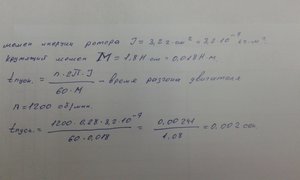 момен инерции ротора J = 3,2 г·см² = 3,2·10⁻⁷ кг·м²
крутящий момен M = 1,8 Н·см = 0,018 Н·м.
tпуск. = n·2П·J / 60·M – время разгона двигателя
n = 1200 об/мин.
tпуск. = 1200·6,28·3,2·10⁻⁷ / 60·0,018 = 0,00241 / 1,08 = 0,002 сек.